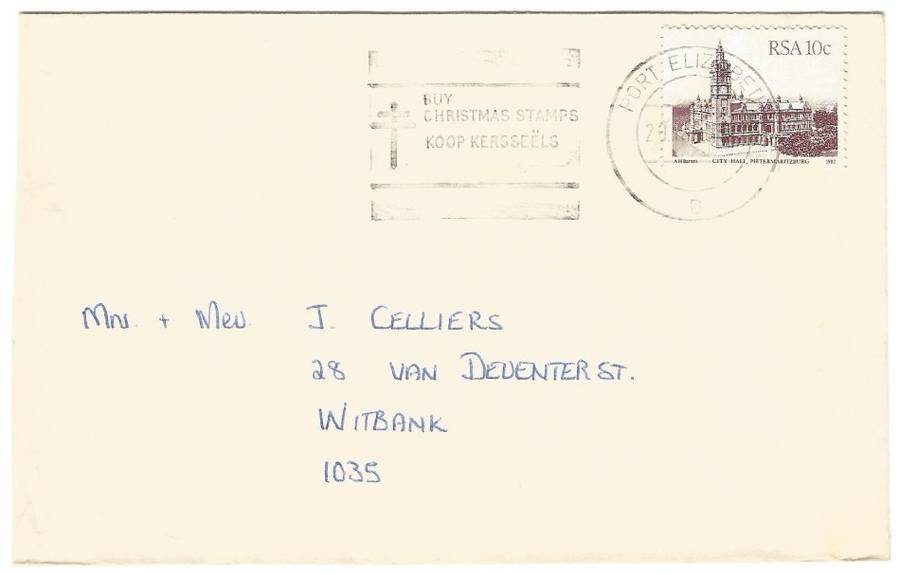 RSA 10c
BUY
CHRISTMAS STAMPS
KOOP KERSSEËLS
PORT ELIZABETH
D
CITY HALL, PIETERMARITZBURG 1982
Mnr. + Mev. J. CELLIERS
28 VAN DEVENTER ST.
WITBANK
1035